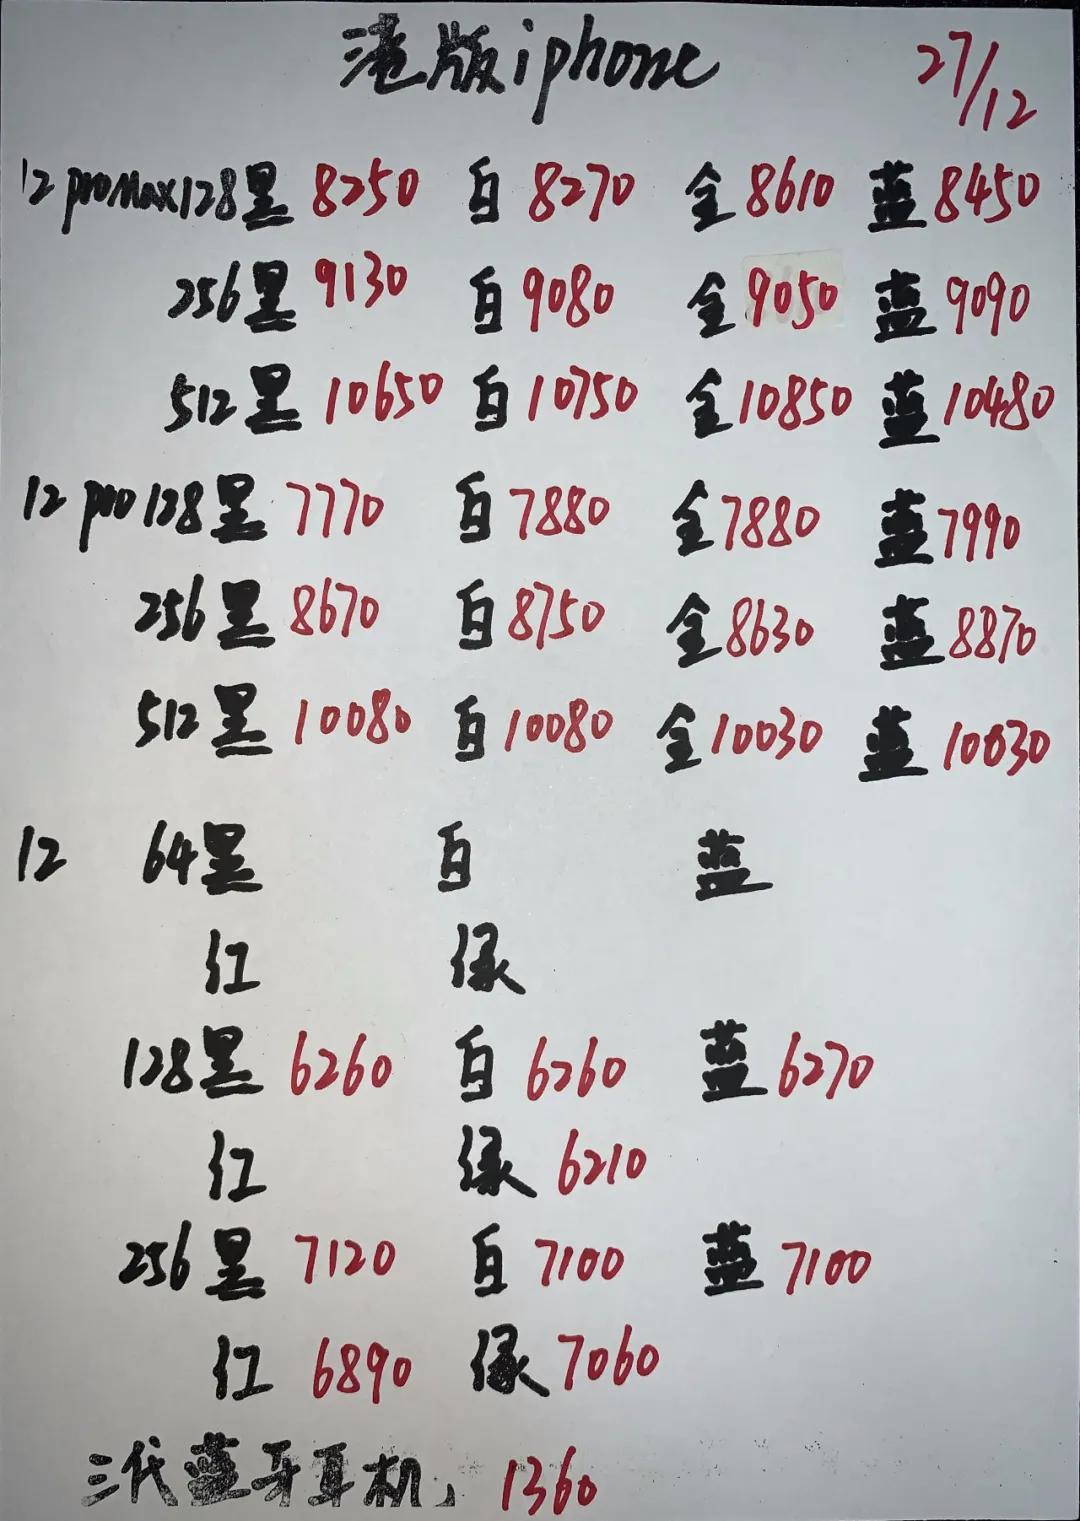 港版iphone 27/12
12 promax128黑 8250 白 8270 金 8610 蓝 8450
256黑 9130 白 9080 金 9050 蓝 9090
512黑 10650 白 10750 金 10850 蓝 10480
12 pro 128黑 7770 白 7880 金 7880 蓝 7990
256黑 8670 白 8750 金 8630 蓝 8870
512黑 10080 白 10080 金 10030 蓝 10030
12 64黑 白 蓝
红 绿
128黑 6260 白 6260 蓝 6270
红 绿 6210
256黑 7120 白 7100 蓝 7100
红 6890 绿 7060
三代蓝牙耳机 1360